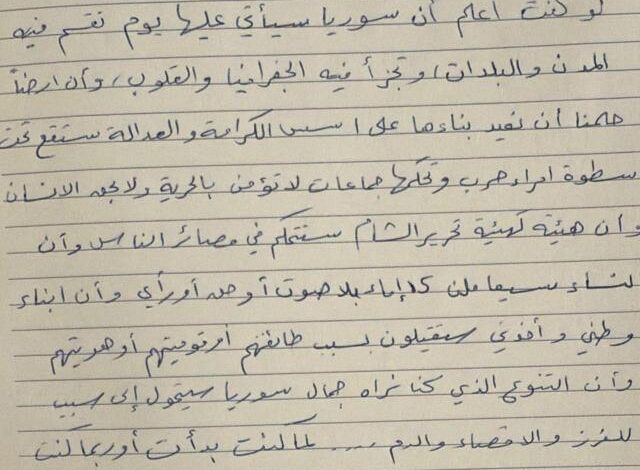 لو كنت أعلم أن سوريا سيأتي عليها يوم تقسم فيه
المدن والبلدات، وتجزأ فيه الجغرافيا والقلوب، وأن ارضاً
حلمنا أن نعيد بناءها على اسس الكرامة والعدالة ستقع تحت
سطوة امراء حرب وتحكمها جماعات لا تؤمن بالحرية ولا بحق الانسان
وأن هيئة كهيئة تحرير الشام ستتحكم في مصائر الناس وأن
نساء سيعاملن كإماء بلا صوت أو حق أو رأي وأن ابناء
وطني وأخوتي سيقتلون بسبب طائفتهم أو قوميتهم أو هويتهم
وأن التنوع الذي كنا نراه جمال سوريا سيتحول إلى سبب
للفرز والاقصاء والدم .... لما كنت بدأت أو ربما كنت